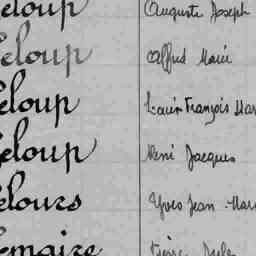 eloup Auguste Joseph
eloup Alfred Marie
eloup Louis François Mar
eloup René Jacques
elours Yves Jean Mar
emaire Pierre